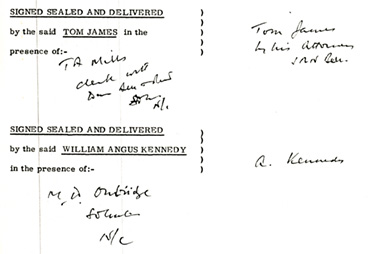 SIGNED SEALED AND DELIVERED )
by the said TOM JAMES in the )
presence of:- )
Tom James
by his Attorney
T A Mills
clerk with
N/c
SIGNED SEALED AND DELIVERED )
by the said WILLIAM ANGUS KENNEDY )
in the presence of:- )
A. Kennedy
M. D.
N/C